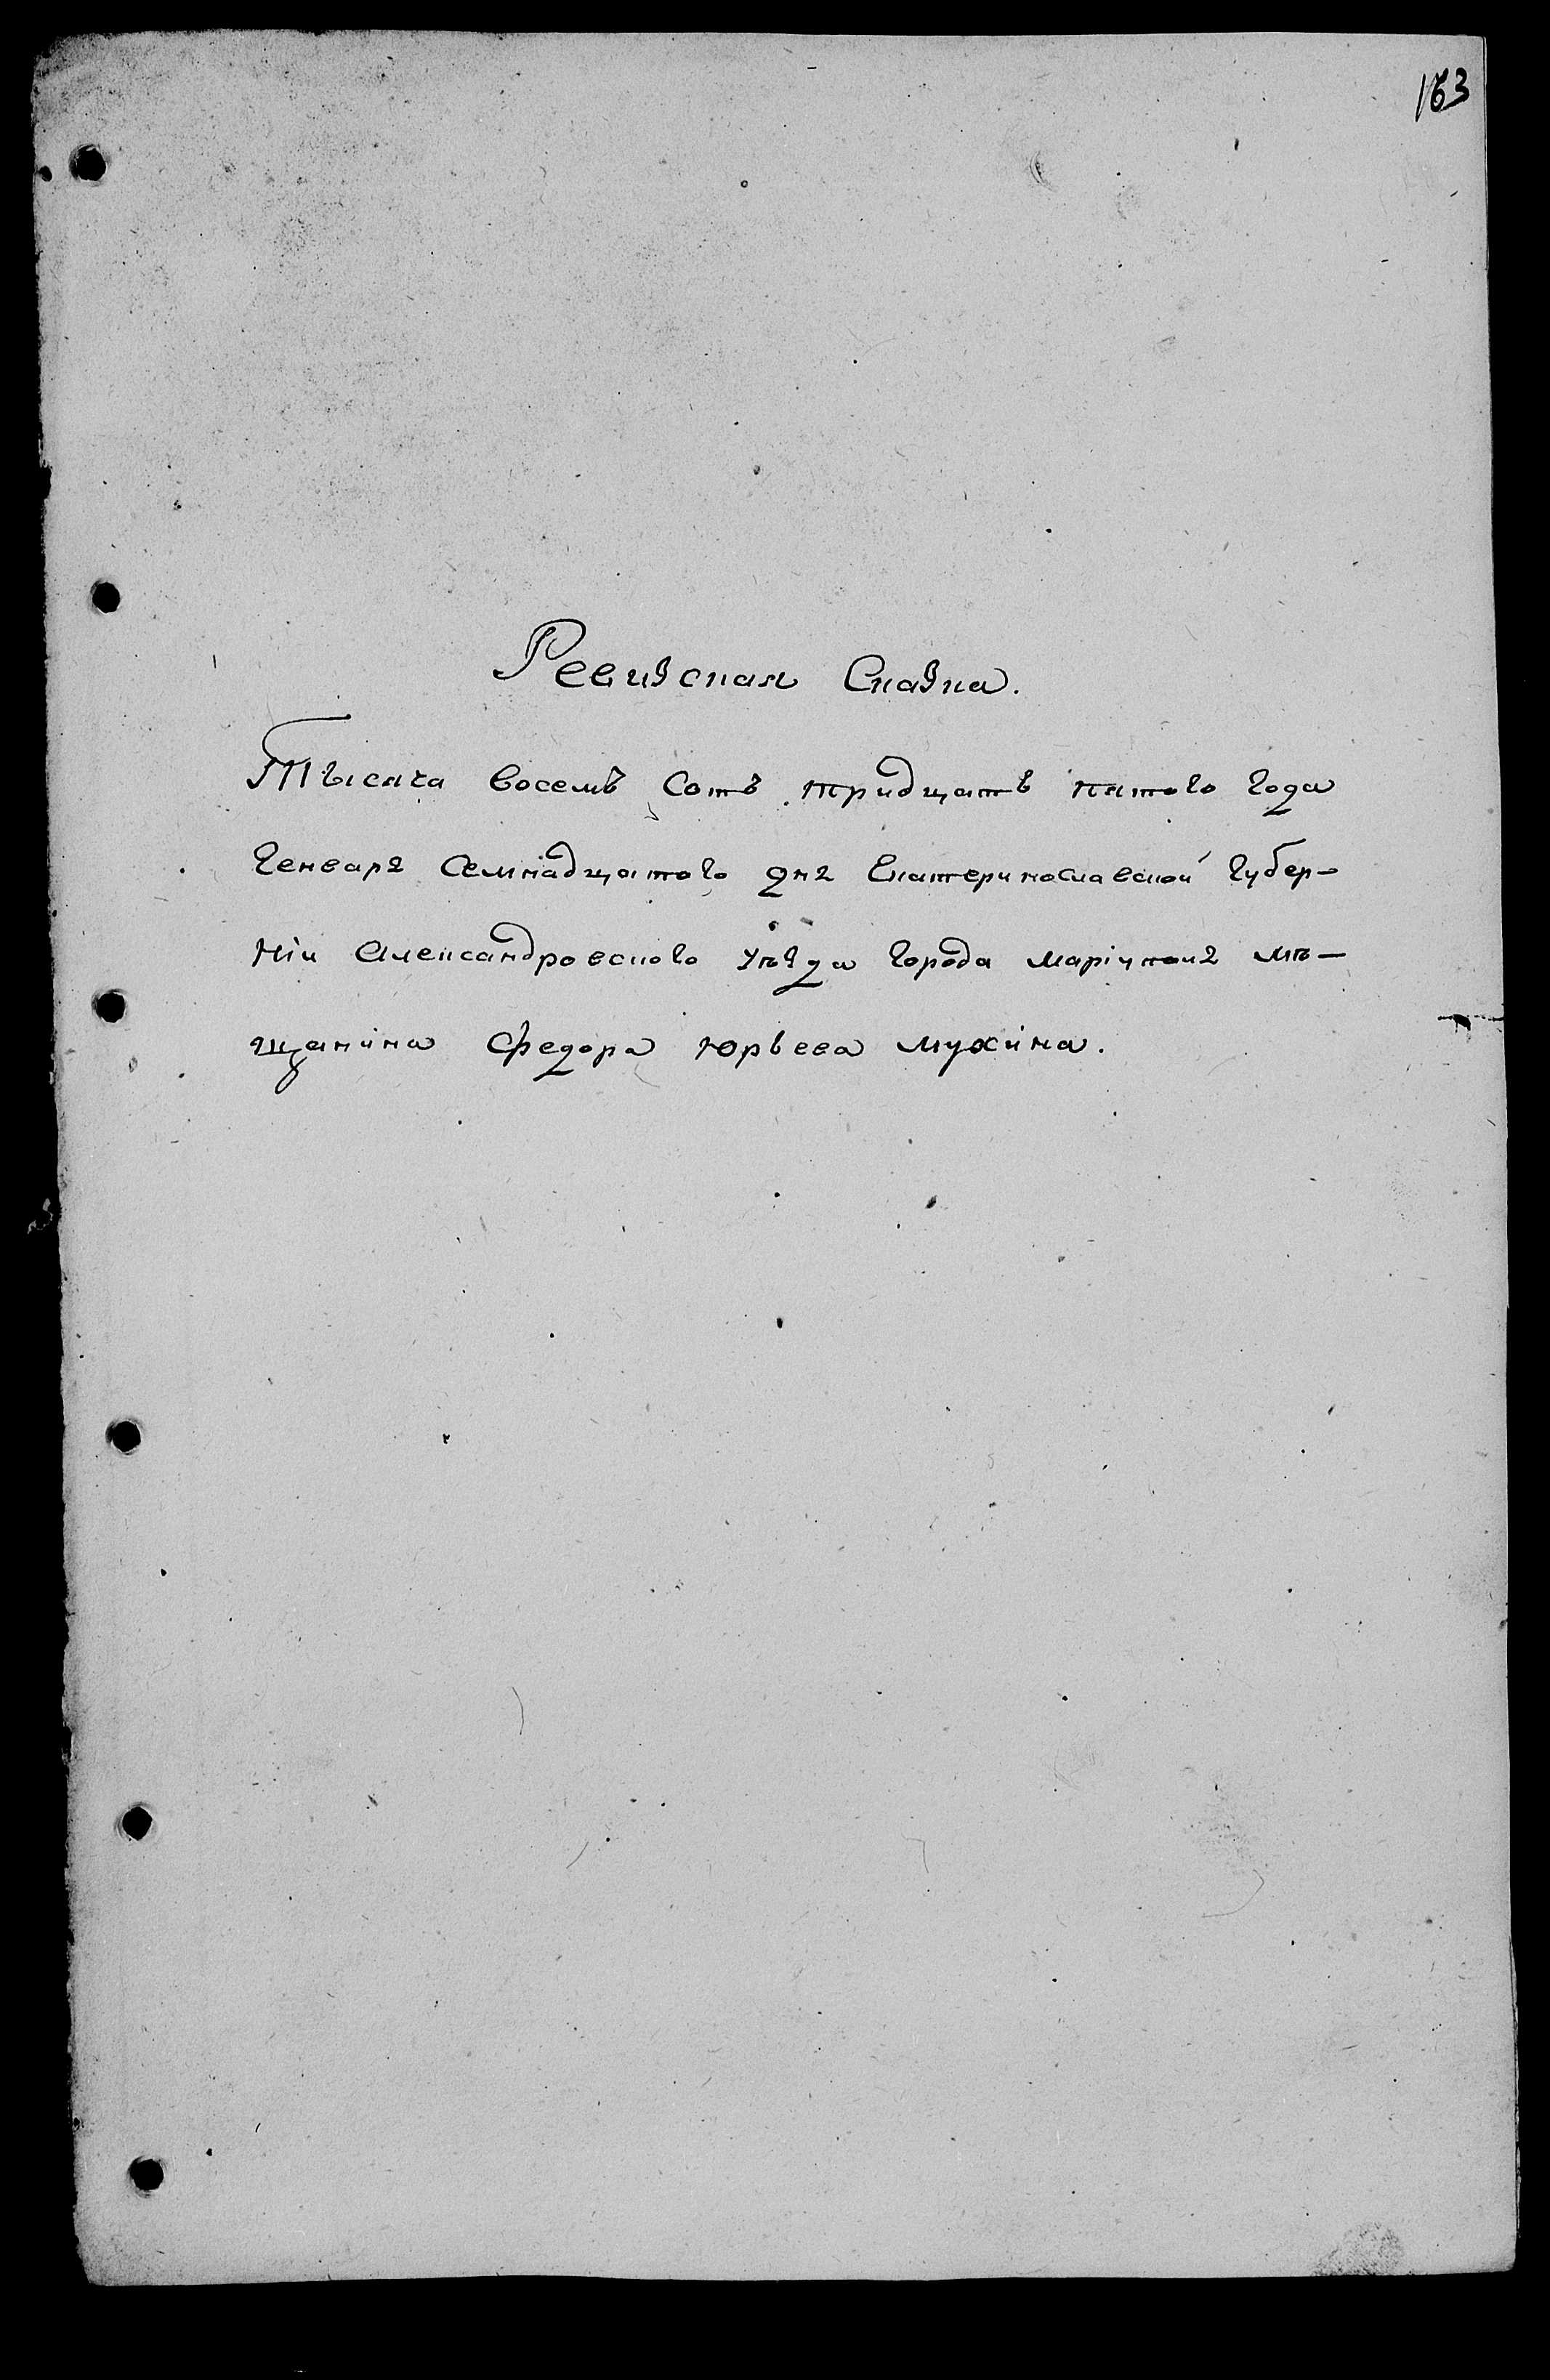 163
Ревизская Сказка.
Тысяча восемъ сотъ тридцать пятого года
Генваря семнадцатого дня Екатеринославской Губер-
нiи Александровского уѣзда города Марiуполя мѣ-
щанина Федора Юрьева Мухина.